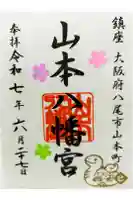 鎮座 大阪府八尾市山本町
山本八幡宮
奉拝 令和七年六月二十七日